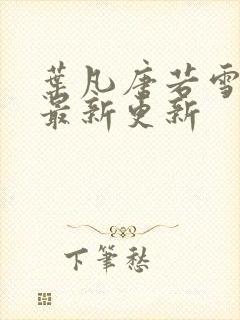 葉凡唐若雪
最新更新
下筆愁